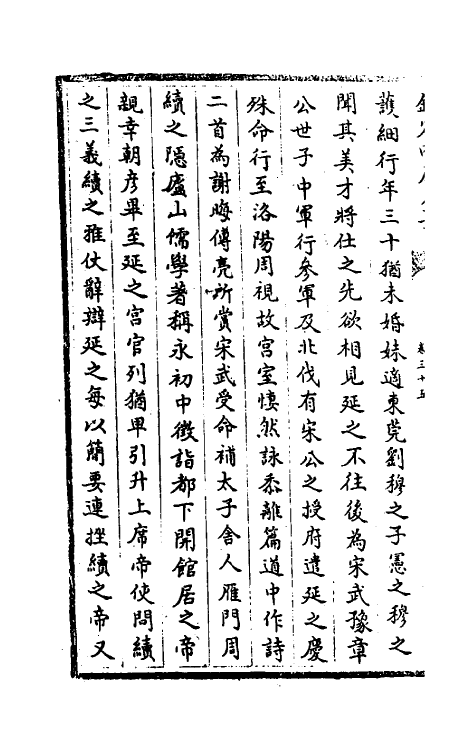 護細行年三十猶未婚妹適東莞劉穆之子憲之穆之
聞其美才將仕之先欲相見延之不往後為宋武豫章
公世子中軍行參軍及北伐有宋公之授府遣延之慶
殊命行至洛陽周視故宮室悽然詠黍離篇道中作詩
二首為謝晦傅亮所賞宋武受命補太子舍人雁門周
續之隱廬山儒學著稱永初中徵詣都下開館居之帝
親幸朝彥畢至延之官官列猶卑引升上席帝使問續
之三義續之雅仗辭辯延之每以簡要連挫續之帝又
卷三十五